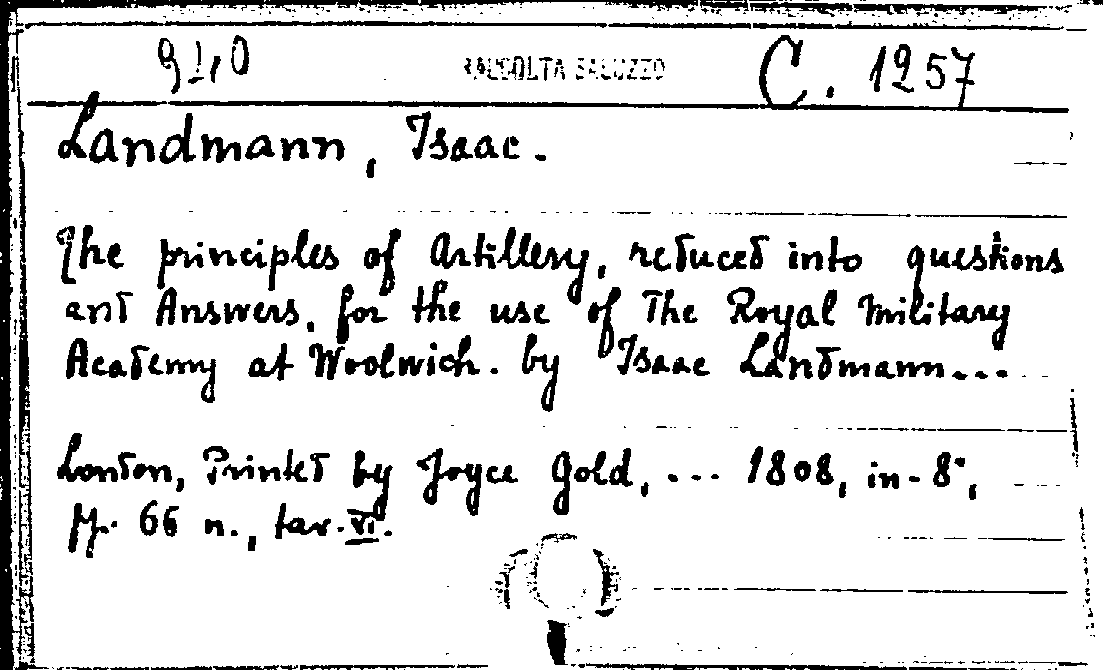 RACCOLTA SALUZZO C. 1257
Landmann, Isaac.
The principles of Artillery, reduced into questions
and Answers, for the use of The Royal Military
Academy at Woolwich. by Isaac Landmann...
London, Printed by Joyce Gold, ... 1808, in-8°,
pp. 66 n., tav. VI.